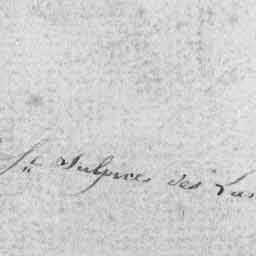 St Sulpice des